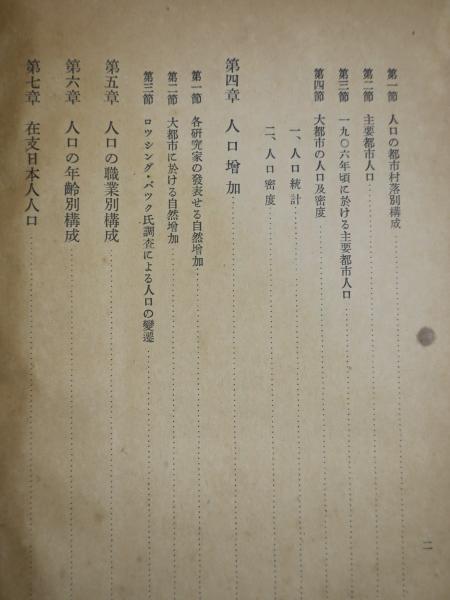 第一節 人口の都市村落別構成
第二節 主要都市人口
第三節 一九〇六年頃に於ける主要都市人口
第四節 大都市の人口及密度
一、人口統計
二、人口密度
第四章 人口增加
第一節 各研究家の發表せる自然增加
第二節 大都市に於ける自然增加
第三節 ロツシング・バツク氏調査による人口の變遷
第五章 人口の職業別構成
第六章 人口の年齡別構成
第七章 在支日本人人口
二